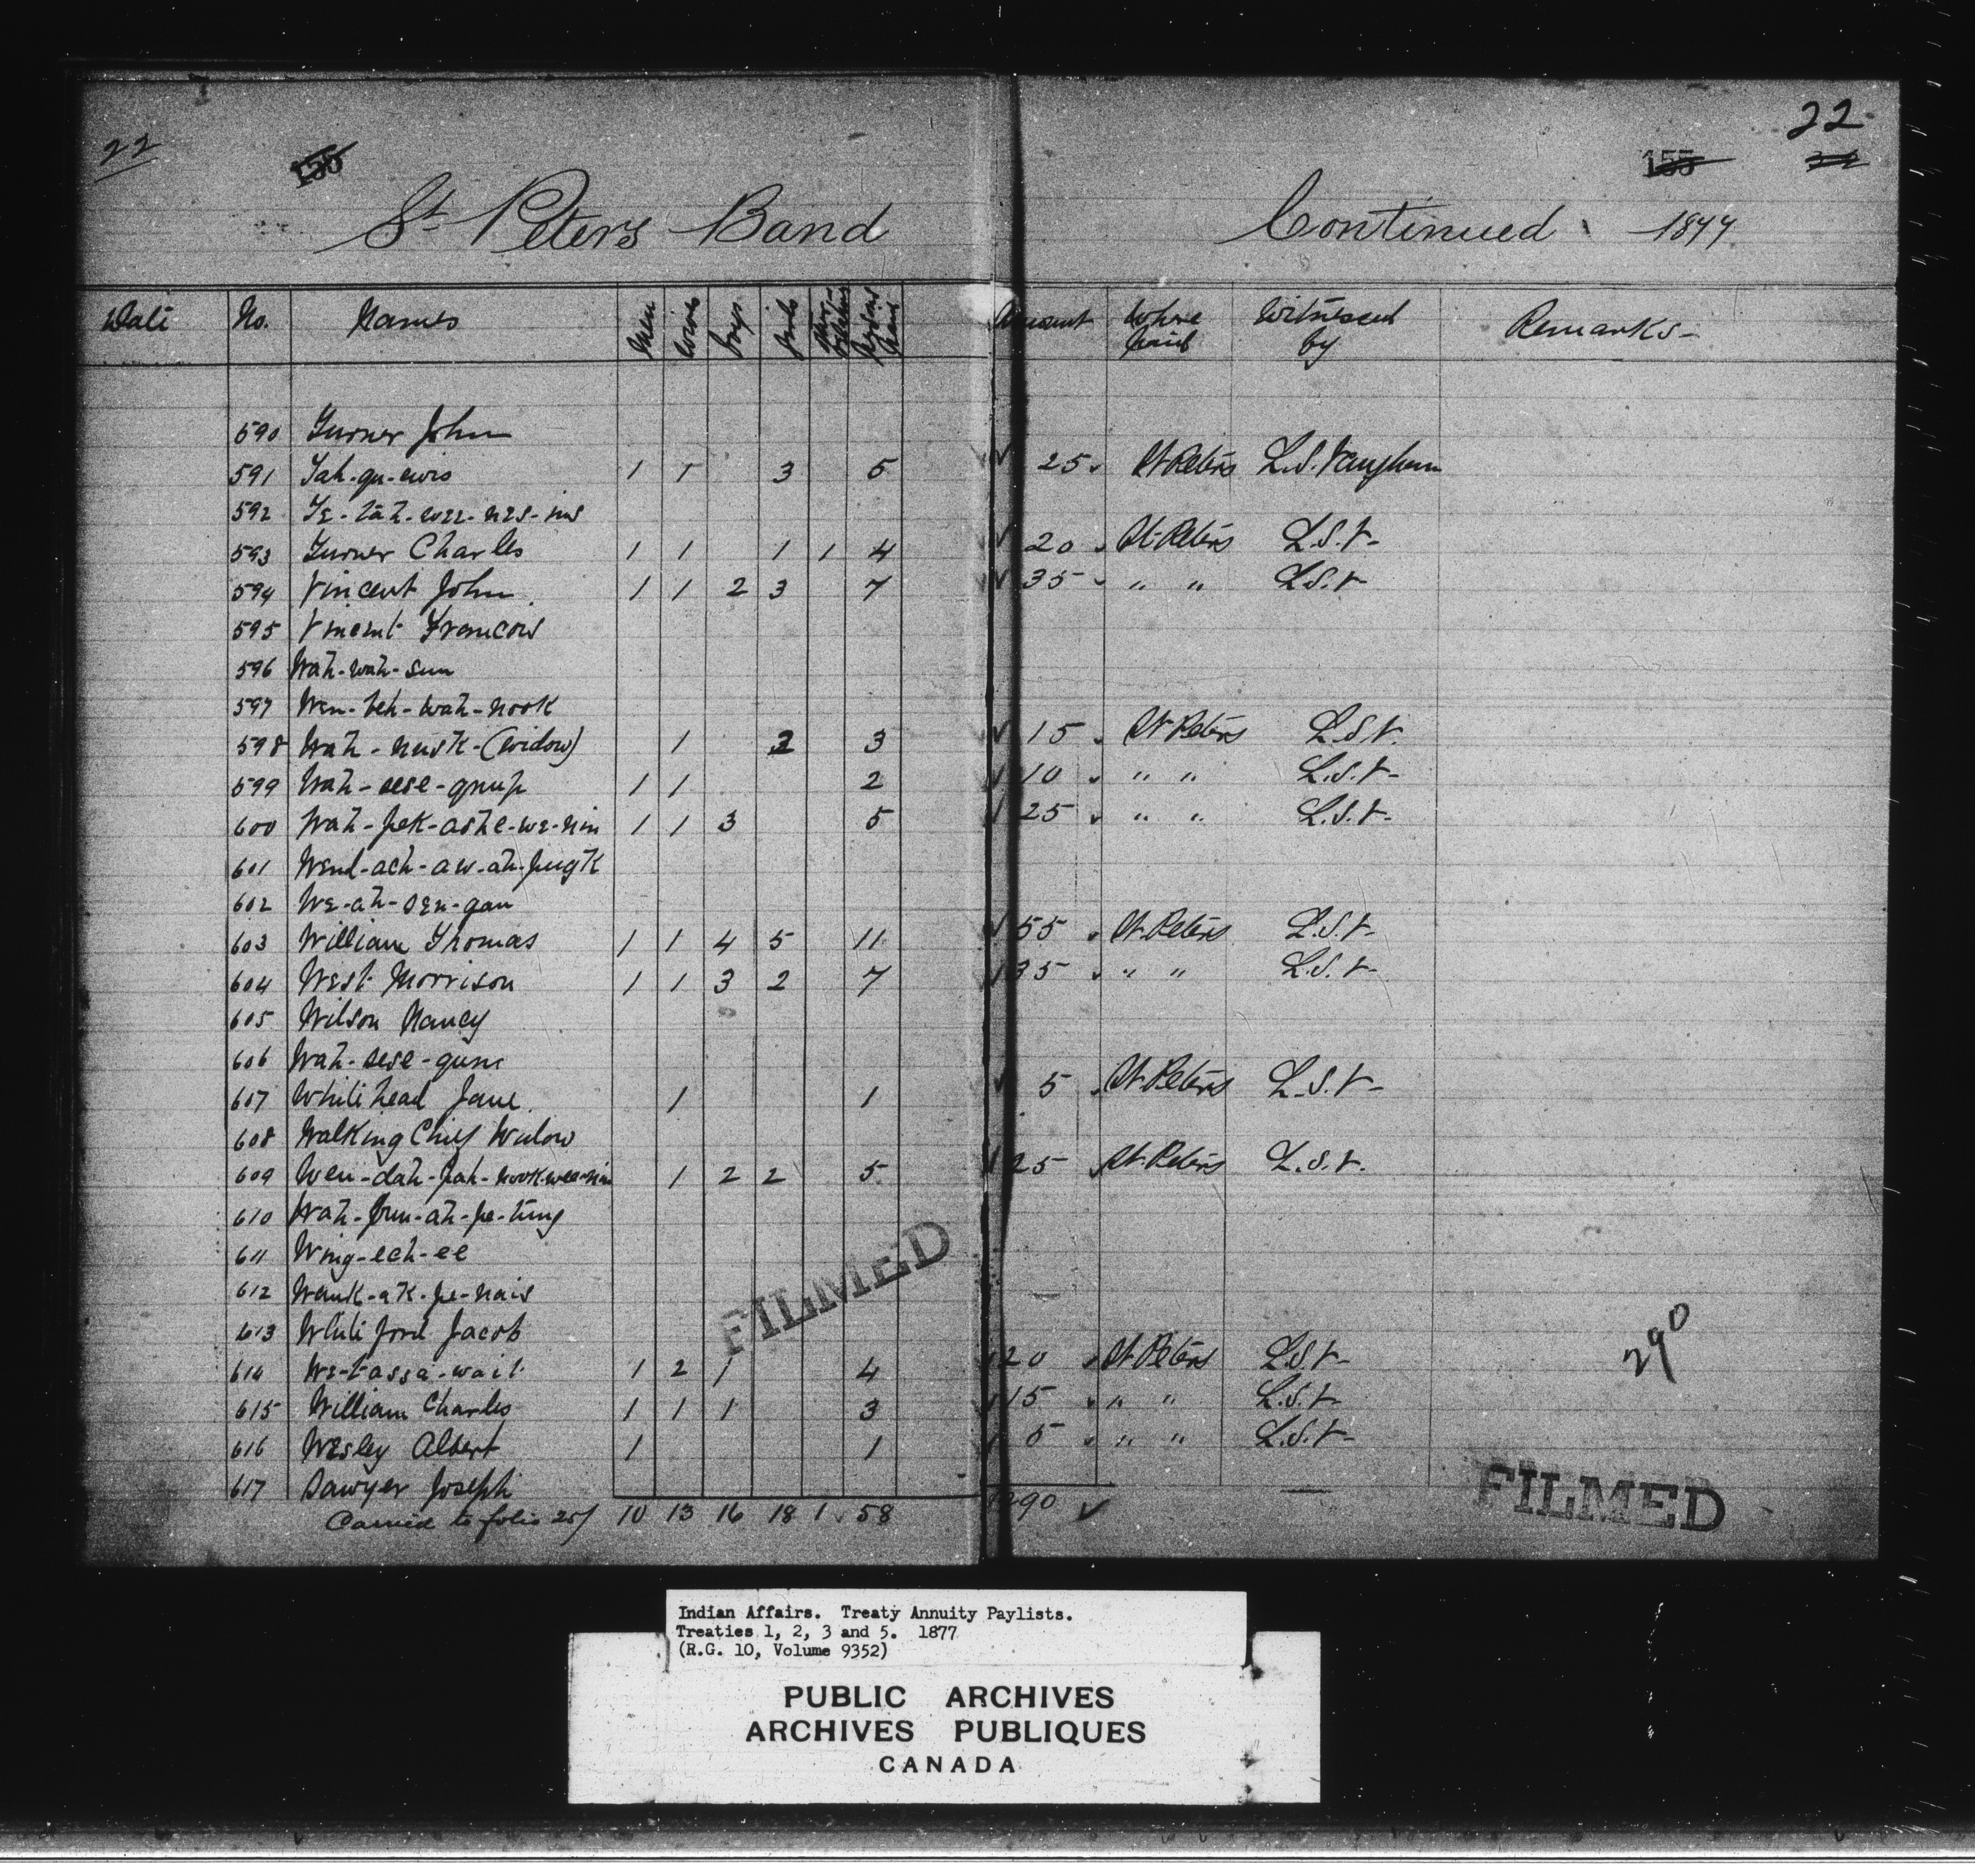 22 155 155 22
St Peters Band Continued 1877
Date No. Names Men Women Boys Girls Other Relatives Persons Paid Amount Where Paid Witnessed by Remarks
590 Turner John
591 Tah-gu-ewis 1 1 3 5 25 St Peters L.S. Vaughan
592
593 Turner Charles 1 1 1 1 4 20 St Peters L.S.V.
594 Vincent John 1 1 2 3 7 35 " " L.S.V.
595 Vincent Francois
596 Wah-wah-sun
597 Wen-teh-wah-nook
598 Wah-nusk-(widow) 1 2 3 15 St Peters L.S.V.
599 Wah-sese-gnup 1 1 2 10 " " L.S.V.
600 Wah-pek-ashe-we-nin 1 1 3 5 25 " " L.S.V.
601 Wend-ach-aw-ah-pugk
602 We-ah-sen-gan
603 William Thomas 1 1 4 5 11 55 St Peters L.S.V.
604 West Morrison 1 1 3 2 7 35 " " L.S.V.
605 Wilson Nancy
606 Wah-sese-gune
607 Whitehead Jane 1 1 5 St Peters L.S.V.
608 Walking Chief Widow
609 Wen-dah-pah-nook-wee-nin 1 2 2 5 25 St Peters L.S.V.
610 Wah-pun-ah-pe-tung
611 Wing-ech-ee
612 Wauk-ak-pe-nais
613 Whiteford Jacob
614 We-tassa-wait 1 2 1 4 20 St Peters L.S.V.
615 William Charles 1 1 1 3 15 " " L.S.V.
616 Wesley Albert 1 1 5 " " L.S.V.
617 Sawyer Joseph
Carried to folio 25/ 10 13 16 18 1 58 290
290
FILMED
FILMED
Indian Affairs. Treaty Annuity Paylists.
Treaties 1, 2, 3 and 5. 1877
(R.G. 10, Volume 9352)
PUBLIC ARCHIVES
ARCHIVES PUBLIQUES
CANADA